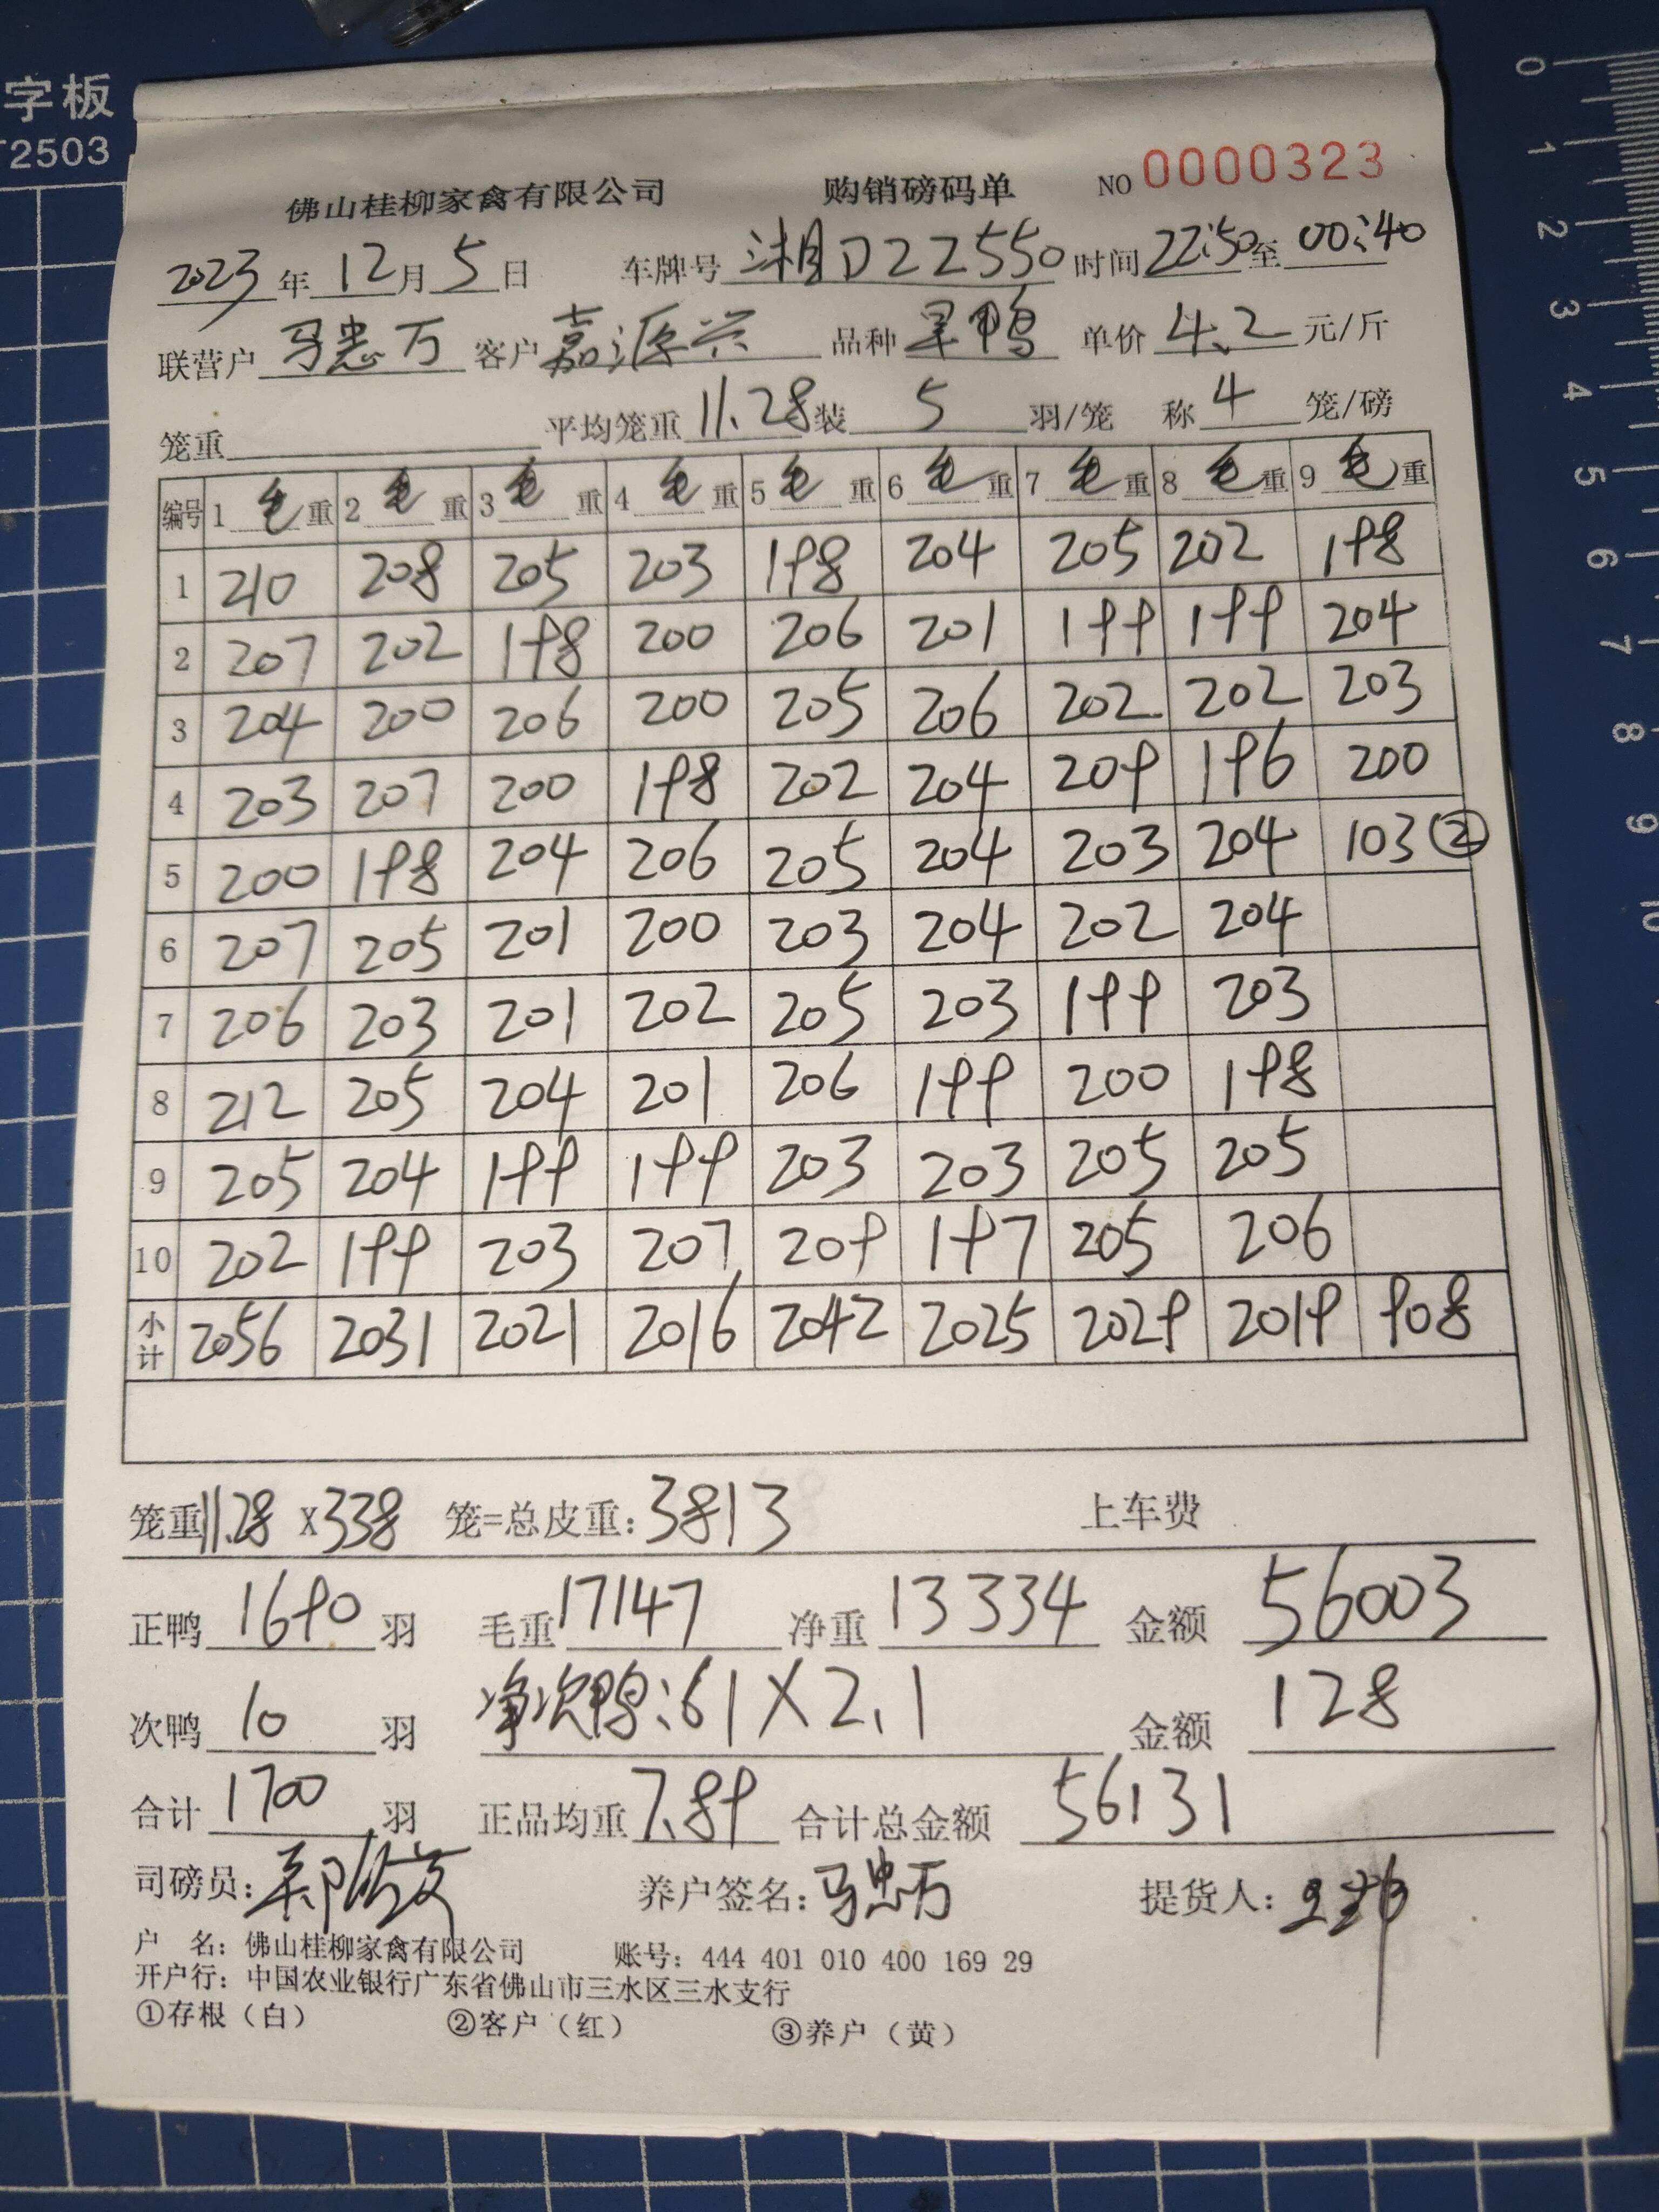 字板
T2503
佛山桂柳家禽有限公司 购销磅码单 NO 0000323
2023年12月5日 车牌号 湘D22550 时间 22:50至00:40
联营户 马忠万 客户 嘉源兴 品种 旱鸭 单价 4.2 元/斤
笼重 平均笼重 11.28 装 5 羽/笼 称 4 笼/磅
编号 1 毛重 2 毛重 3 毛重 4 毛重 5 毛重 6 毛重 7 毛重 8 毛重 9 毛重
1 210 208 205 203 198 204 205 202 198
2 207 202 198 200 206 201 199 199 204
3 204 200 206 200 205 206 202 202 203
4 203 207 200 198 202 204 209 196 200
5 200 198 204 206 205 204 203 204 103②
6 207 205 201 200 203 204 202 204
7 206 203 201 202 205 203 199 203
8 212 205 204 201 206 199 200 198
9 205 204 199 199 203 203 205 205
10 202 199 203 207 209 197 205 206
小计 2056 2031 2021 2016 2042 2025 2029 2019 908
笼重 11.28 X 338 笼=总皮重: 3813 上车费
正鸭 1690 羽 毛重 17147 净重 13334 金额 56003
次鸭 10 羽 净次鸭:61X2.1 金额 128
合计 1700 羽 正品均重 7.89 合计总金额 56131
司磅员: 养户签名: 马忠万 提货人:
户 名: 佛山桂柳家禽有限公司 账号: 444 401 010 400 169 29
开户行: 中国农业银行广东省佛山市三水区三水支行
①存根（白） ②客户（红） ③养户（黄）
0
1
2
3
4
5
6
7
8
9
10